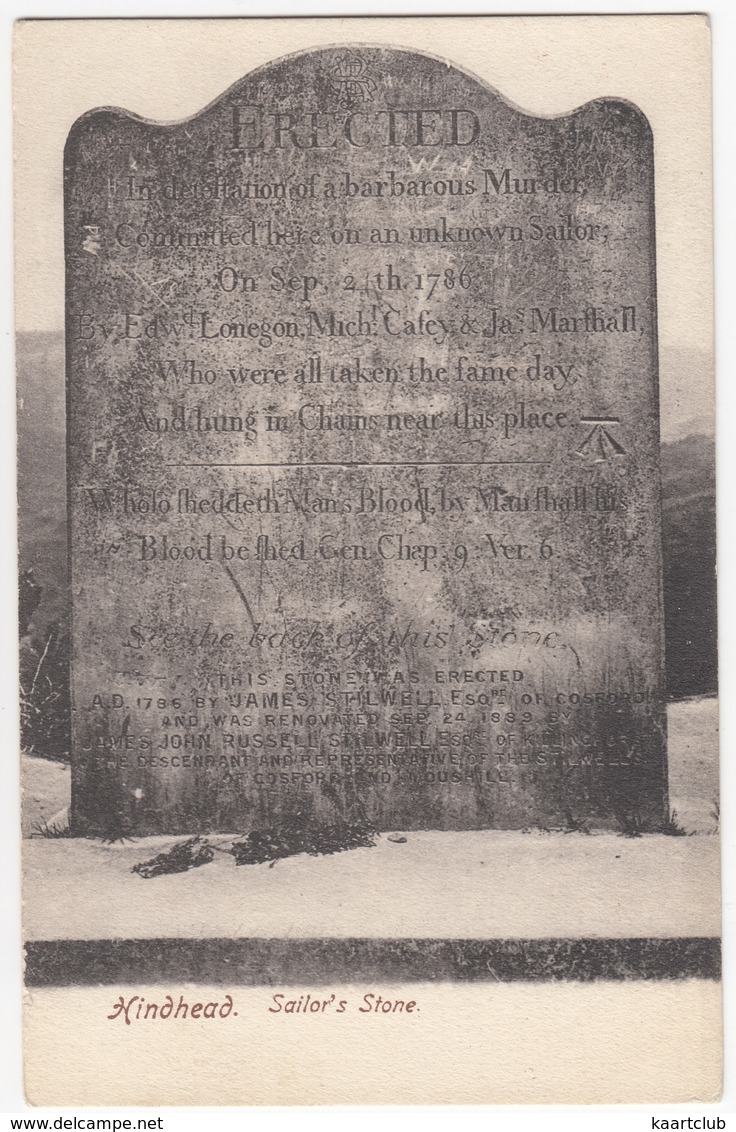 ERECTED
In deteſtation of a barbarous Murder,
Committed here on an unknown Sailor;
On Sep, 24th, 1786
By Edwd. Lonegon, Michl. Caſey & Jas. Marſhall,
Who were all taken the ſame day,
And hung in Chains near this place.
Whoſo ſheddeth Man's Blood, by Man ſhall his
Blood be ſhed. Gen. Chap: 9: Ver. 6
See the back of this Stone.
THIS STONE WAS ERECTED
A.D. 1786 BY JAMES STILWELL ESQRE OF COSFORD
AND WAS RENOVATED SEP. 24 1889 BY
JAMES JOHN RUSSELL STILWELL ESQRE OF
THE DESCENDANT AND REPRESENTATIVE OF THE STILWELLS
OF COSFORD AND MOUSHILL
Hindhead. Sailor's Stone.
kaartclub